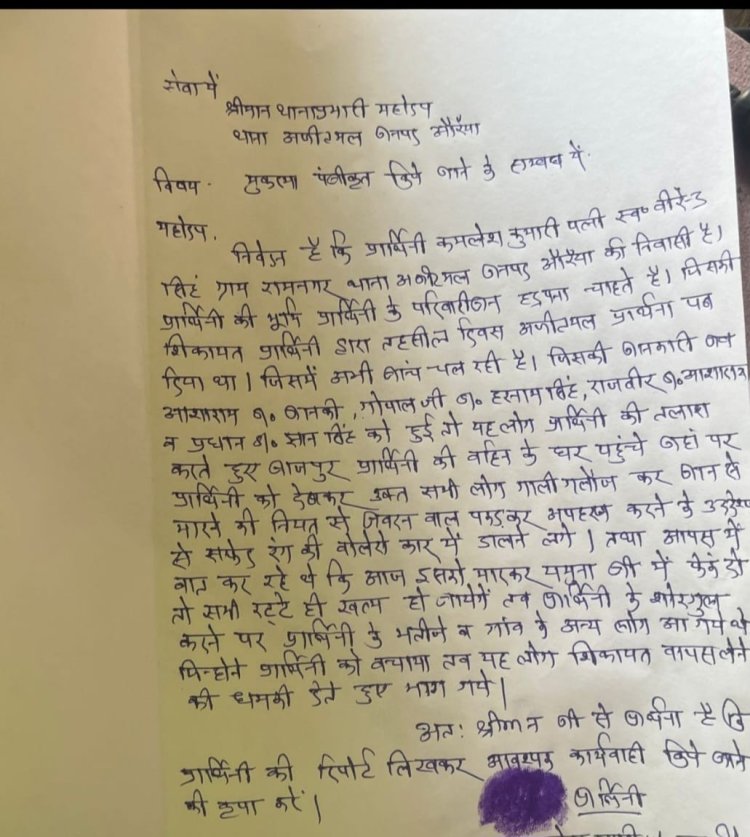 सेवा में
श्रीमान थानाप्रभारी महोदय
थाना अजीतमल जनपद औरैया
विषय - मुकदमा पंजीकृत किये जाने के सम्बन्ध में.
महोदय,
निवेदन है कि प्रार्थिनी कमलेश कुमारी पत्नी स्व० वीरेन्द्र
सिंह ग्राम रामनगर थाना अजीतमल जनपद औरैया की निवासी है।
प्रार्थिनी की भूमि प्रार्थिनी के परिवारीजन हडपना चाहते है। जिसकी
शिकायत प्रार्थिनी द्वारा तहसील दिवस अजीतमल प्रार्थना पत्र
दिया था। जिसमें अभी जांच चल रही है। जिसकी जानकारी जब
आशाराम पु० जानकी, गोपाल जी पु० हरनाम सिंह, राजवीर पु० आशाराम
व प्रधान पु० ज्ञान सिंह को हुई तो यह लोग प्रार्थिनी की तलाश
करते हुए बाजपुर प्रार्थिनी की बहिन के घर पहुंचे जहां पर
प्रार्थिनी को देखकर उक्त सभी लोग गाली गलौज कर जान से
मारने की नियत से जबरन बाल पकडकर अपहरण करने के उद्देश्य
से सफेद रंग की बोलेरो कार में डालने लगे। तथा आपस में
बात कर रहे थे कि आज इसको मारकर यमुना जी में फेंक दो
तो सभी रट्टे ही खत्म हो जायेगें तब प्रार्थिनी के शोरगुल
करने पर प्रार्थिनी के भतीजे व गांव के अन्य लोग आ गये थे
जिन्होने प्रार्थिनी को बचाया तब यह लोग शिकायत वापस लेने
की धमकी देते हुए भाग गये।
अतः श्रीमान जी से प्रार्थना है कि
प्रार्थिनी की रिपोर्ट लिखकर आवश्यक कार्यवाही किये जाने
की कृपा करें।
प्रार्थिनी